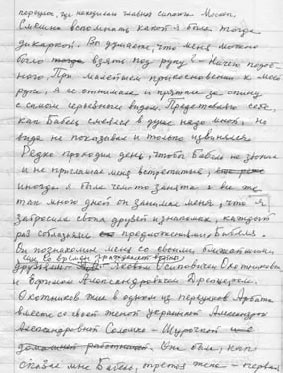 переулок, где находились главные
Смешно вспоминать какой я была тогда
дикаркой. Вы думаете, что меня можно
было тогда взять под руку? – Ничего подоб-
ного. При малейшем прикосновении к моей
руке, я ее отнимала и прятала за спину
с самым серьезным видом. Представляю себе
как Бабель смеялся в душе надо мной, но
вида не показывал и только извинялся.
Редко проходил день, чтобы Бабель не звонил
и не приглашал меня встретиться,
иногда я была чем-то занята и все же
так много дней он занимал меня, что я
забросила своих друзей и знакомых, каждый
раз соглашаясь на предложения Бабеля.
Он познакомил меня со своими ближайшими
друзьями Яковом Осиповичем Охотниковым
и Ефимом Александровичем Дрейцером.
Охотников жил в одном из переулков Арбата
вместе со своей женой украинкой Александрой
Александровной Соломко – Шурочкой
Она была, как
сказал мне Бабель, третья жена – первая